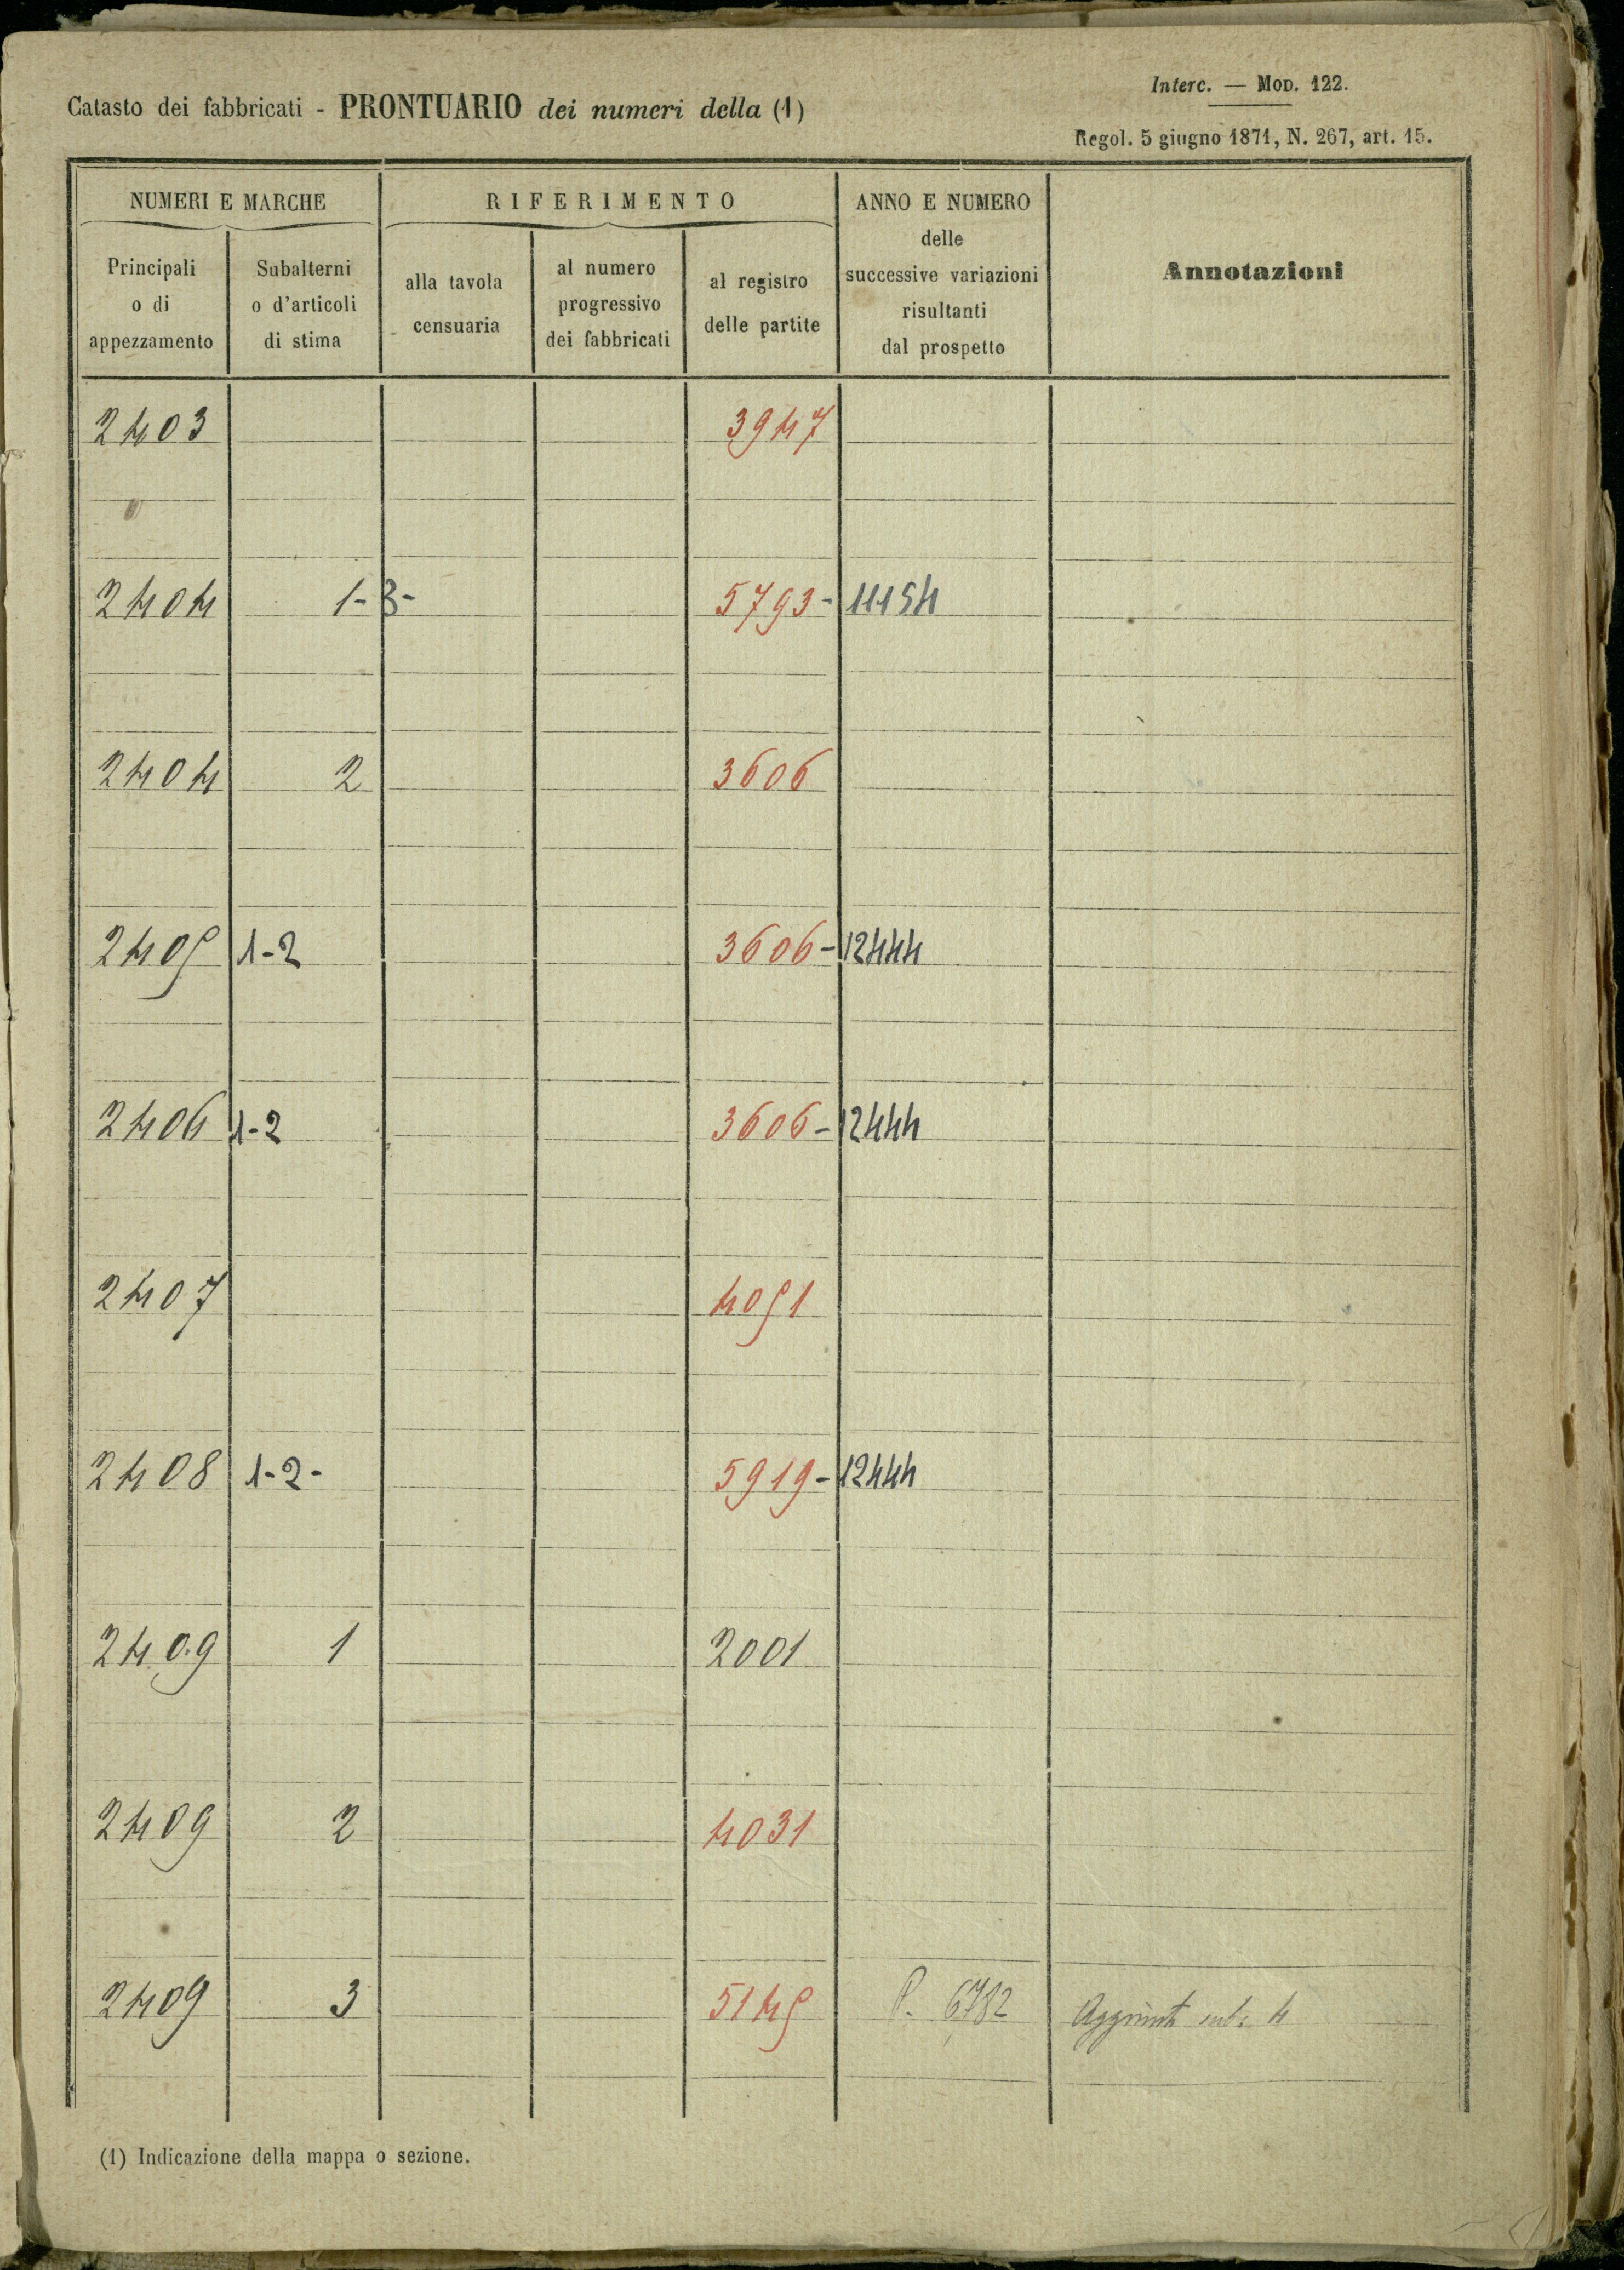 Catasto dei fabbricati - PRONTUARIO dei numeri della (1)
Interc. — MOD. 122.
Regol. 5 giugno 1871, N. 267, art. 15.
NUMERI E MARCHE
RIFERIMENTO
ANNO E NUMERO
delle
successive variazioni
risultanti
dal prospetto
Annotazioni
Principali
o di
appezzamento
Subalterni
o d'articoli
di stima
alla tavola
censuaria
al numero
progressivo
dei fabbricati
al registro
delle partite
2403 3947
2404 1-3- 5793- 11154
2404 2 3606
2405 1-2 3606- 12444
2406 1-2 3606- 12444
2407 4051
2408 1-2- 5919- 12444
2409 1 2001
2409 2 4031
2409 3 5145 P. 6782 Aggiunta sub: 4
(1) Indicazione della mappa o sezione.